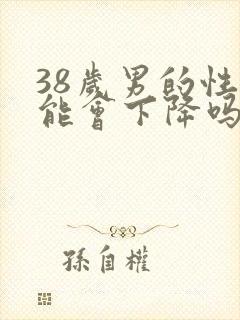 38歲男的性
能會下降嗎
孫自權